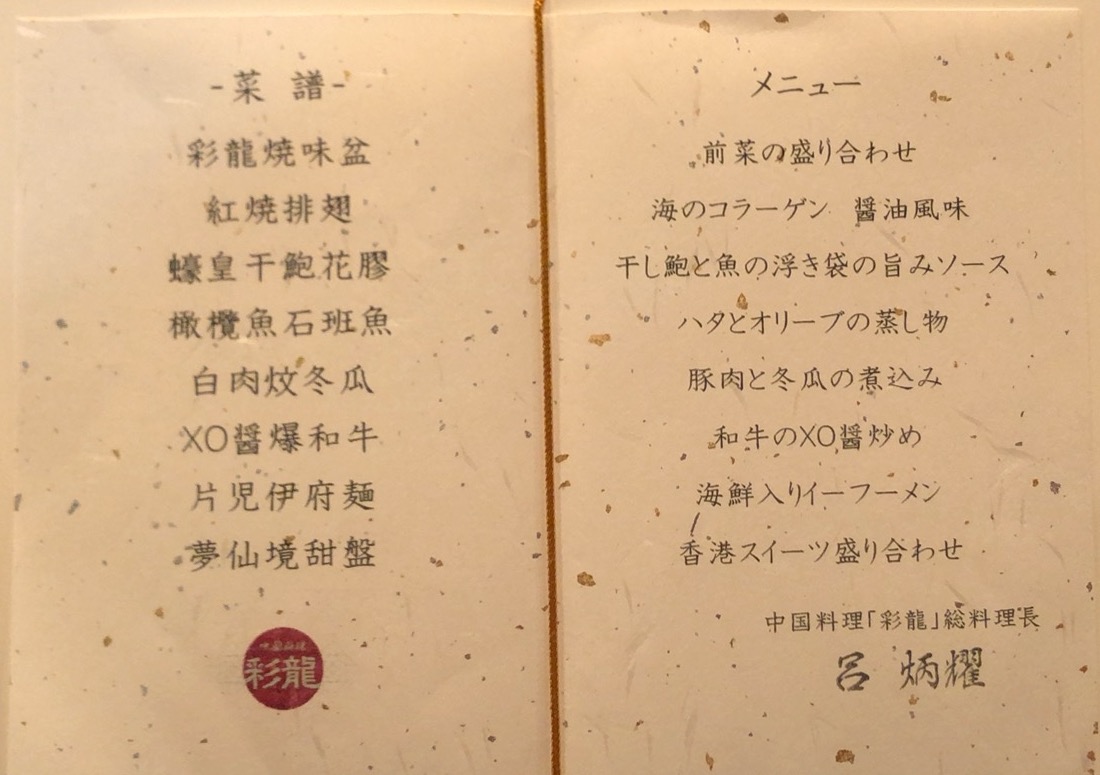 -菜 譜-
彩龍焼味盆
紅焼排翅
蠔皇干鮑花膠
橄欖魚石班魚
白肉炆冬瓜
XO醤爆和牛
片児伊府麺
夢仙境甜盤
彩龍
メニュー
前菜の盛り合わせ
海のコラーゲン 醤油風味
干し鮑と魚の浮き袋の旨みソース
ハタとオリーブの蒸し物
豚肉と冬瓜の煮込み
和牛のXO醤炒め
海鮮入りイーフーメン
香港スイーツ盛り合わせ
中国料理「彩龍」総料理長
呂 炳耀